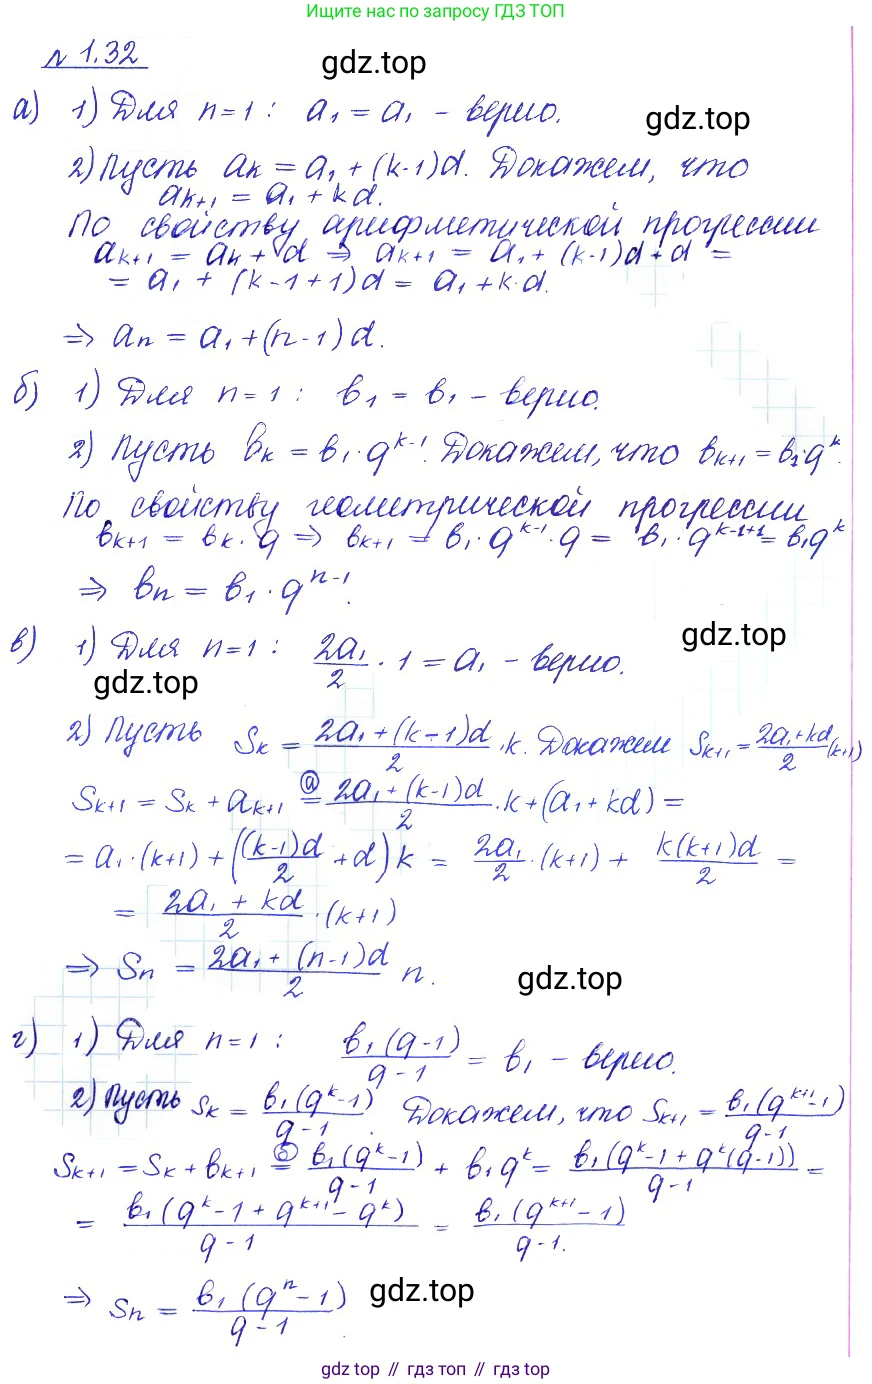 Ищите нас по запросу ГДЗ ТОП
N 1.32
gdz.top
а) 1) Для n=1 : a₁ = a₁ – верно.
gdz.top
2) Пусть aₖ = a₁ + (k-1)d. Докажем, что
aₖ₊₁ = a₁ + kd.
По свойству арифметической прогрессии
aₖ₊₁ = aₖ + d ⇒ aₖ₊₁ = a₁ + (k-1)d + d =
= a₁ + (k-1+1)d = a₁ + k·d.
⇒ aₙ = a₁ + (n-1)d.
б) 1) Для n=1 : b₁ = b₁ – верно.
2) Пусть bₖ = b₁·q^(k-1). Докажем, что bₖ₊₁ = b₁·q^k.
По свойству геометрической прогрессии
bₖ₊₁ = bₖ·q ⇒ bₖ₊₁ = b₁·q^(k-1)·q = b₁·q^(k-1+1) = b₁q^k
⇒ bₙ = b₁·q^(n-1).
в) 1) Для n=1 : 2a₁/2 · 1 = a₁ – верно.
gdz.top
gdz.top
2) Пусть Sₖ = (2a₁ + (k-1)d)/2 · k. Докажем Sₖ₊₁ = (2a₁+kd)/2 (k+1)
Sₖ₊₁ = Sₖ + aₖ₊₁ =ⓐ (2a₁ + (k-1)d)/2 · k + (a₁ + kd) =
= a₁·(k+1) + ((k-1)d/2 + d) k = 2a₁/2 · (k+1) + k(k+1)d/2 =
= (2a₁ + kd)/2 · (k+1)
⇒ Sₙ = (2a₁ + (n-1)d)/2 n.
gdz.top
г) 1) Для n=1 : b₁(q-1)/(q-1) = b₁ – верно.
2) Пусть Sₖ = b₁(q^k-1)/(q-1). Докажем, что Sₖ₊₁ = b₁(q^(k+1)-1)/(q-1)
Sₖ₊₁ = Sₖ + bₖ₊₁ =ⓑ b₁(q^k-1)/(q-1) + b₁q^k = b₁(q^k-1+q^k(q-1))/(q-1) =
= b₁(q^k-1+q^(k+1)-q^k)/(q-1) = b₁(q^(k+1)-1)/(q-1).
⇒ Sₙ = b₁(q^n-1)/(q-1)
gdz.top
gdz.top // гдз топ // gdz top